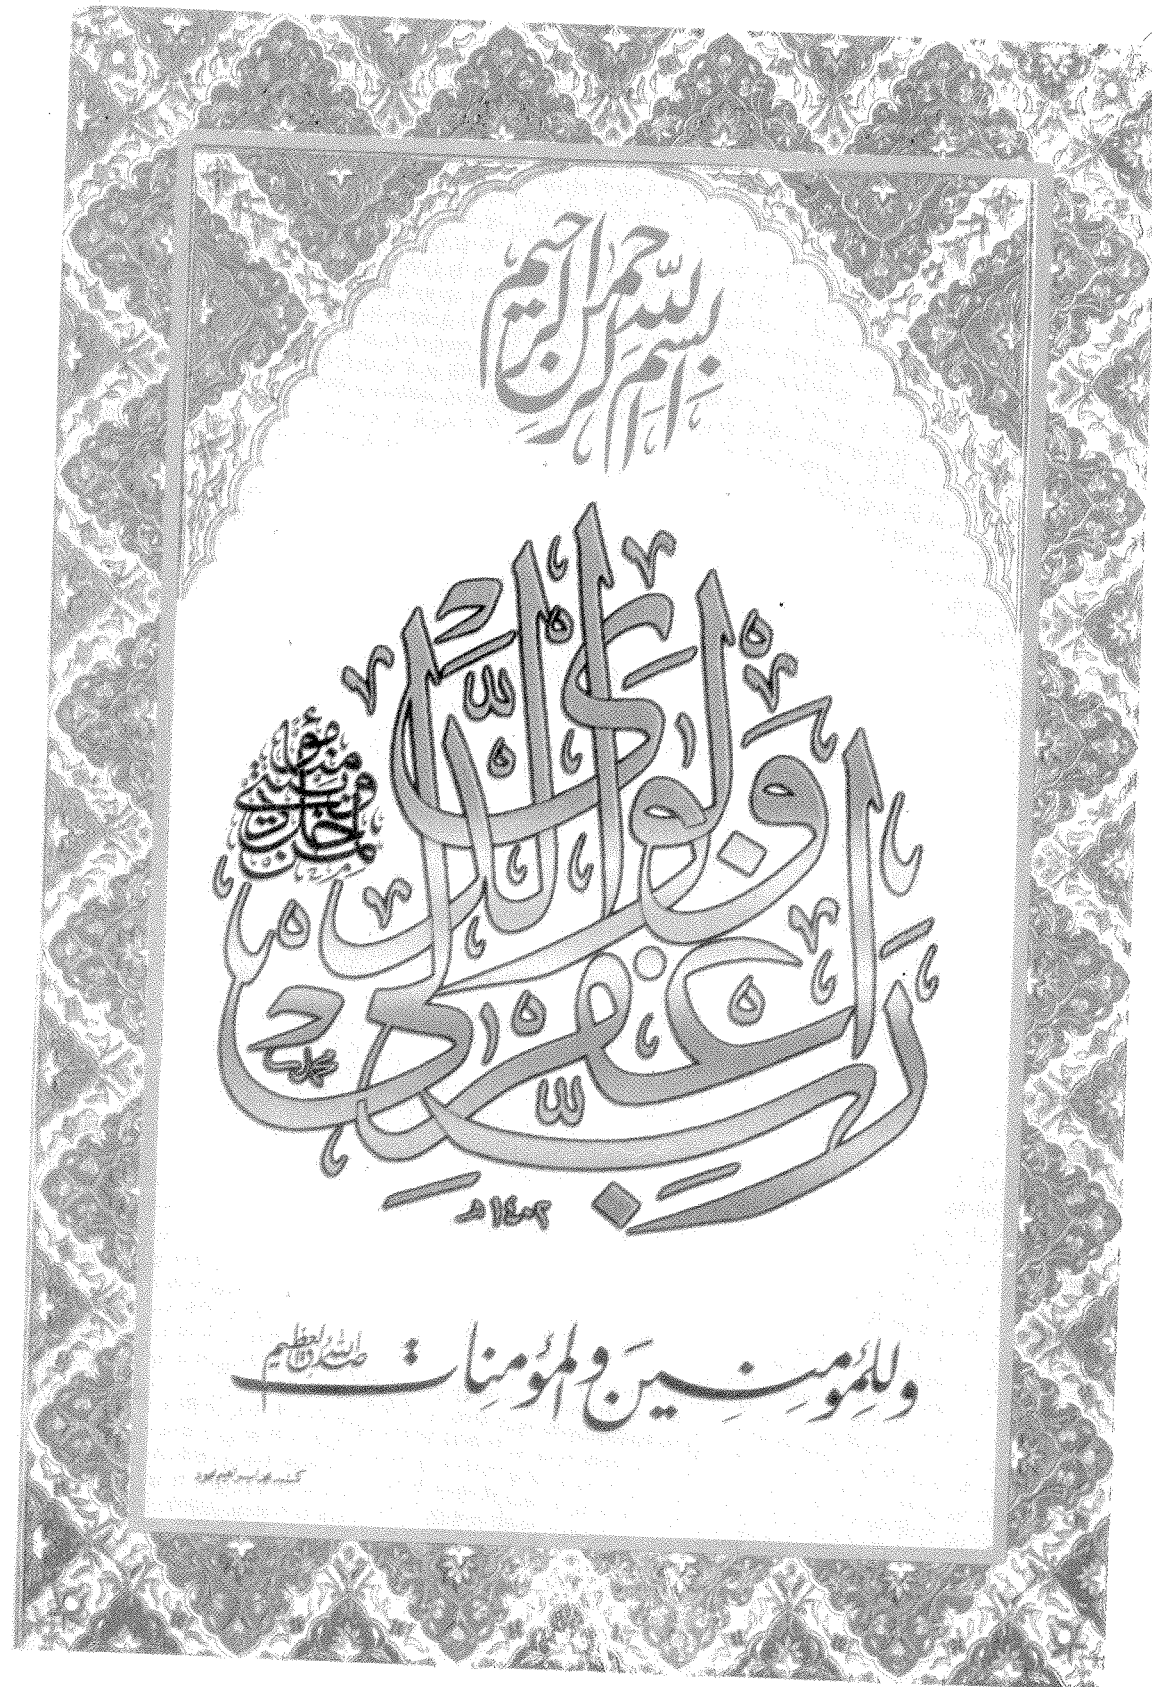 بسم الله الرحمن الرحيم
رب اغفر لي ولوالدي
ولمن دخل بيتي مؤمنا
١٤٠٢هـ
وللمؤمنين والمؤمنات
صدق الله العظيم